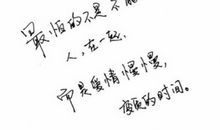 最恨的不是不能
人,在一起,
而是爱情慢慢,
变的时间。